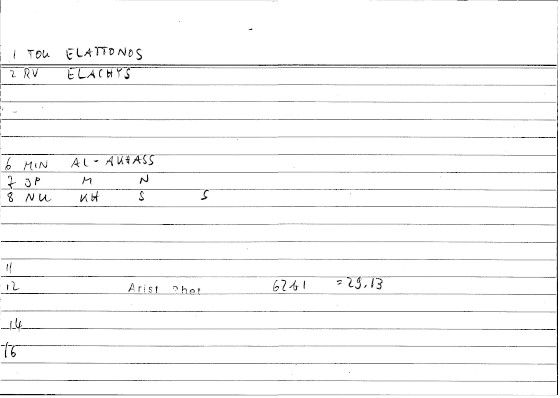 1 TOU ELATTONOS
2 RV ELACHYS
6 MIN AL-AKHASS
7 JP M N
8 NU KH S S
11
12 Arist Rhet 6261 = 29.13
14
16